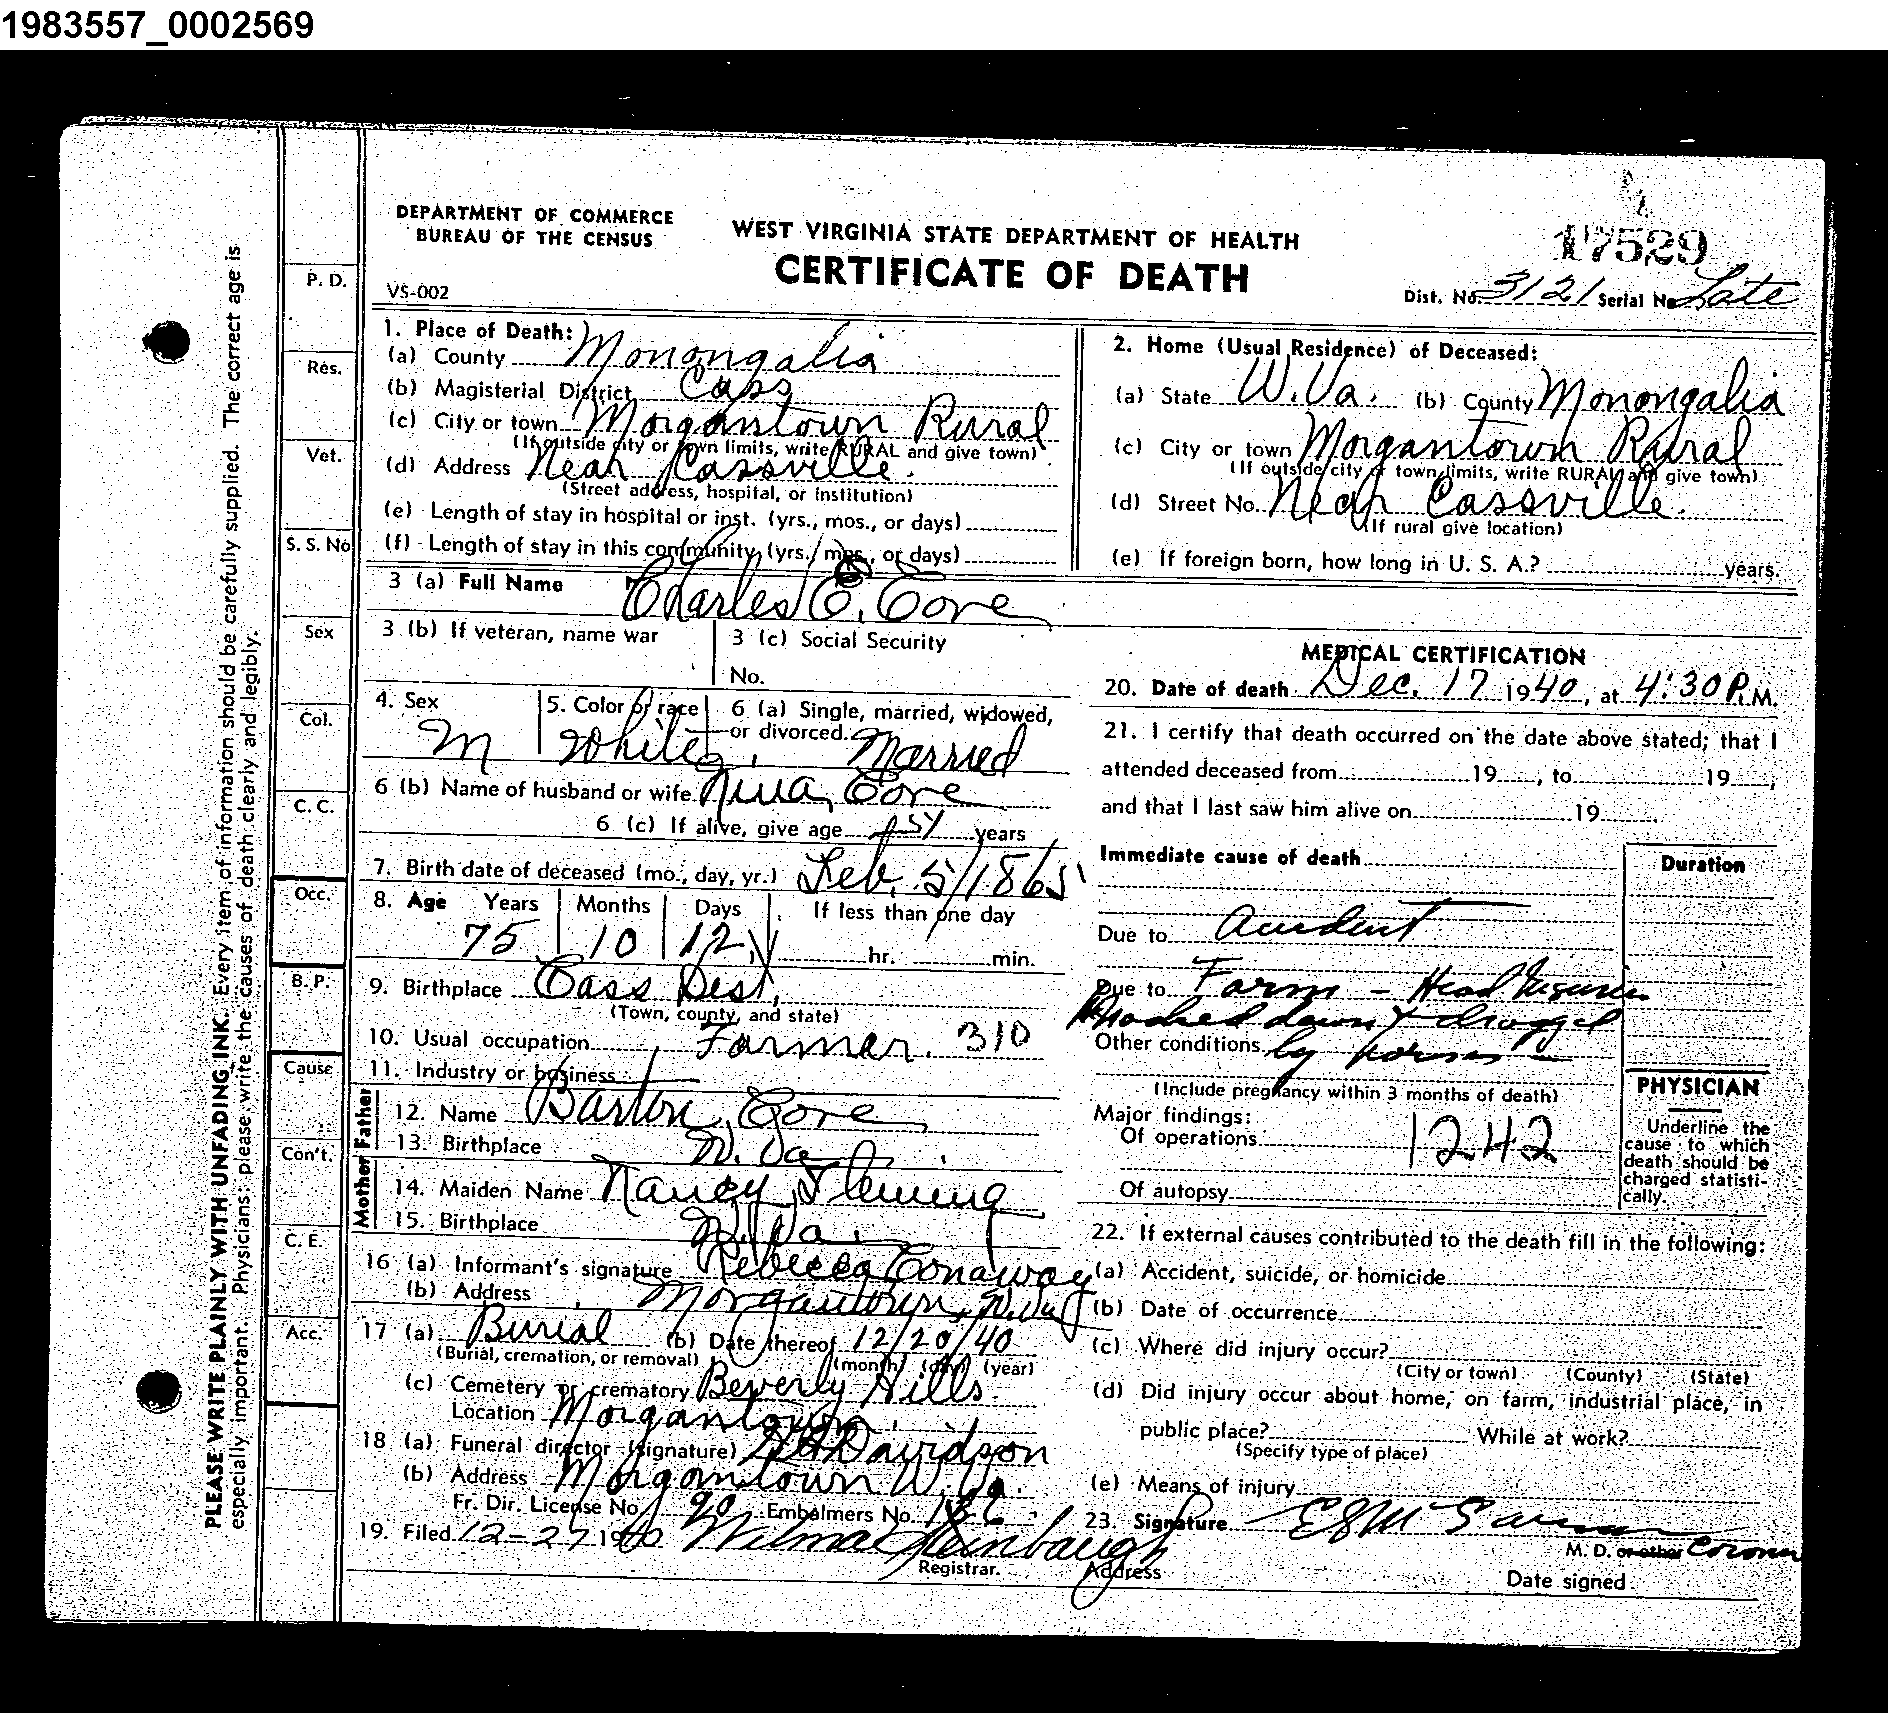 1983557_0002569
DEPARTMENT OF COMMERCE
BUREAU OF THE CENSUS
WEST VIRGINIA STATE DEPARTMENT OF HEALTH
CERTIFICATE OF DEATH
17529
VS-002
Dist. No. 3121 Serial No. Late
PLEASE WRITE PLAINLY WITH UNFADING INK. Every item of information should be carefully supplied. The correct age is
especially important. Physicians: please write the causes of death clearly and legibly.
P. D.
Res.
Vet.
S. S. No
Sex
Col.
C. C.
Occ.
B. P.
Cause
Con't.
C. E.
Acc.
1. Place of Death:
(a) County Monongalia
(b) Magisterial District Cass
(c) City or town Morgantown Rural
(If outside city or town limits, write RURAL and give town)
(d) Address Near Cassville.
(Street address, hospital, or institution)
(e) Length of stay in hospital or inst. (yrs., mos., or days)
(f) Length of stay in this community (yrs., mos., or days)
2. Home (Usual Residence) of Deceased:
(a) State W. Va. (b) County Monongalia
(c) City or town Morgantown Rural
(If outside city or town limits, write RURAL and give town)
(d) Street No. Near Cassville.
(If rural give location)
(e) If foreign born, how long in U. S. A.? years.
3 (a) Full Name Charles E. Core
3 (b) If veteran, name war
3 (c) Social Security
No.
4. Sex M
5. Color or race White
6 (a) Single, married, widowed,
or divorced. Married
6 (b) Name of husband or wife Nina Core
6 (c) If alive, give age years
7. Birth date of deceased (mo., day, yr.) Feb. 5/1865
8. Age Years Months Days If less than one day
75 10 12 hr. min.
9. Birthplace Cass Dist.
(Town, county, and state)
10. Usual occupation Farmer. 310
11. Industry or business
Father
12. Name Barton Core
13. Birthplace W. Va
Mother
14. Maiden Name Nancy Fleming
15. Birthplace W. Va
16 (a) Informant's signature Rebecca Conaway
(b) Address Morgantown, W. Va
17 (a) Burial (b) Date thereof 12/20/40
(Burial, cremation, or removal) (month) (day) (year)
(c) Cemetery or crematory Beverly Hills.
Location Morgantown.
18 (a) Funeral director (signature) Davidson
(b) Address Morgantown W. Va.
Fr. Dir. License No. 90 Embalmers No.
19. Filed 12-27 1940 Wilma
Registrar.
MEDICAL CERTIFICATION
20. Date of death Dec. 17 1940, at 4:30 P. M.
21. I certify that death occurred on the date above stated; that I
attended deceased from 19 , to 19 ,
and that I last saw him alive on 19
Immediate cause of death
Duration
Due to Accident
Due to Farm - Head Injuries
Knocked down & dragged
Other conditions by horses
(Include pregnancy within 3 months of death)
Major findings:
Of operations 1242
Of autopsy
PHYSICIAN
Underline the
cause to which
death should be
charged statisti-
cally.
22. If external causes contributed to the death fill in the following:
(a) Accident, suicide, or homicide
(b) Date of occurrence
(c) Where did injury occur?
(City or town) (County) (State)
(d) Did injury occur about home, on farm, industrial place, in
public place? While at work?
(Specify type of place)
(e) Means of injury
23. Signature
M. D. or other Coroner
Address
Date signed